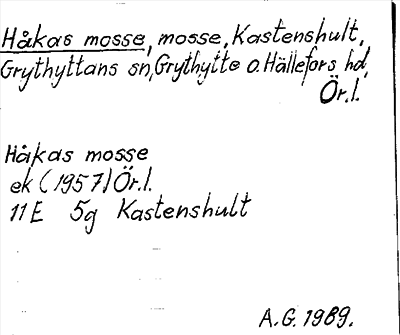 Håkas mosse, mosse, Kastenshult,
Grythyttans sn, Grythytte o. Hällefors hd,
Ör.l.
Håkas mosse
ek (1957) Ör.l.
11E 5g Kastenshult
A.G. 1989.